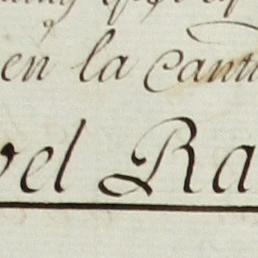 en la canti
vel Ra